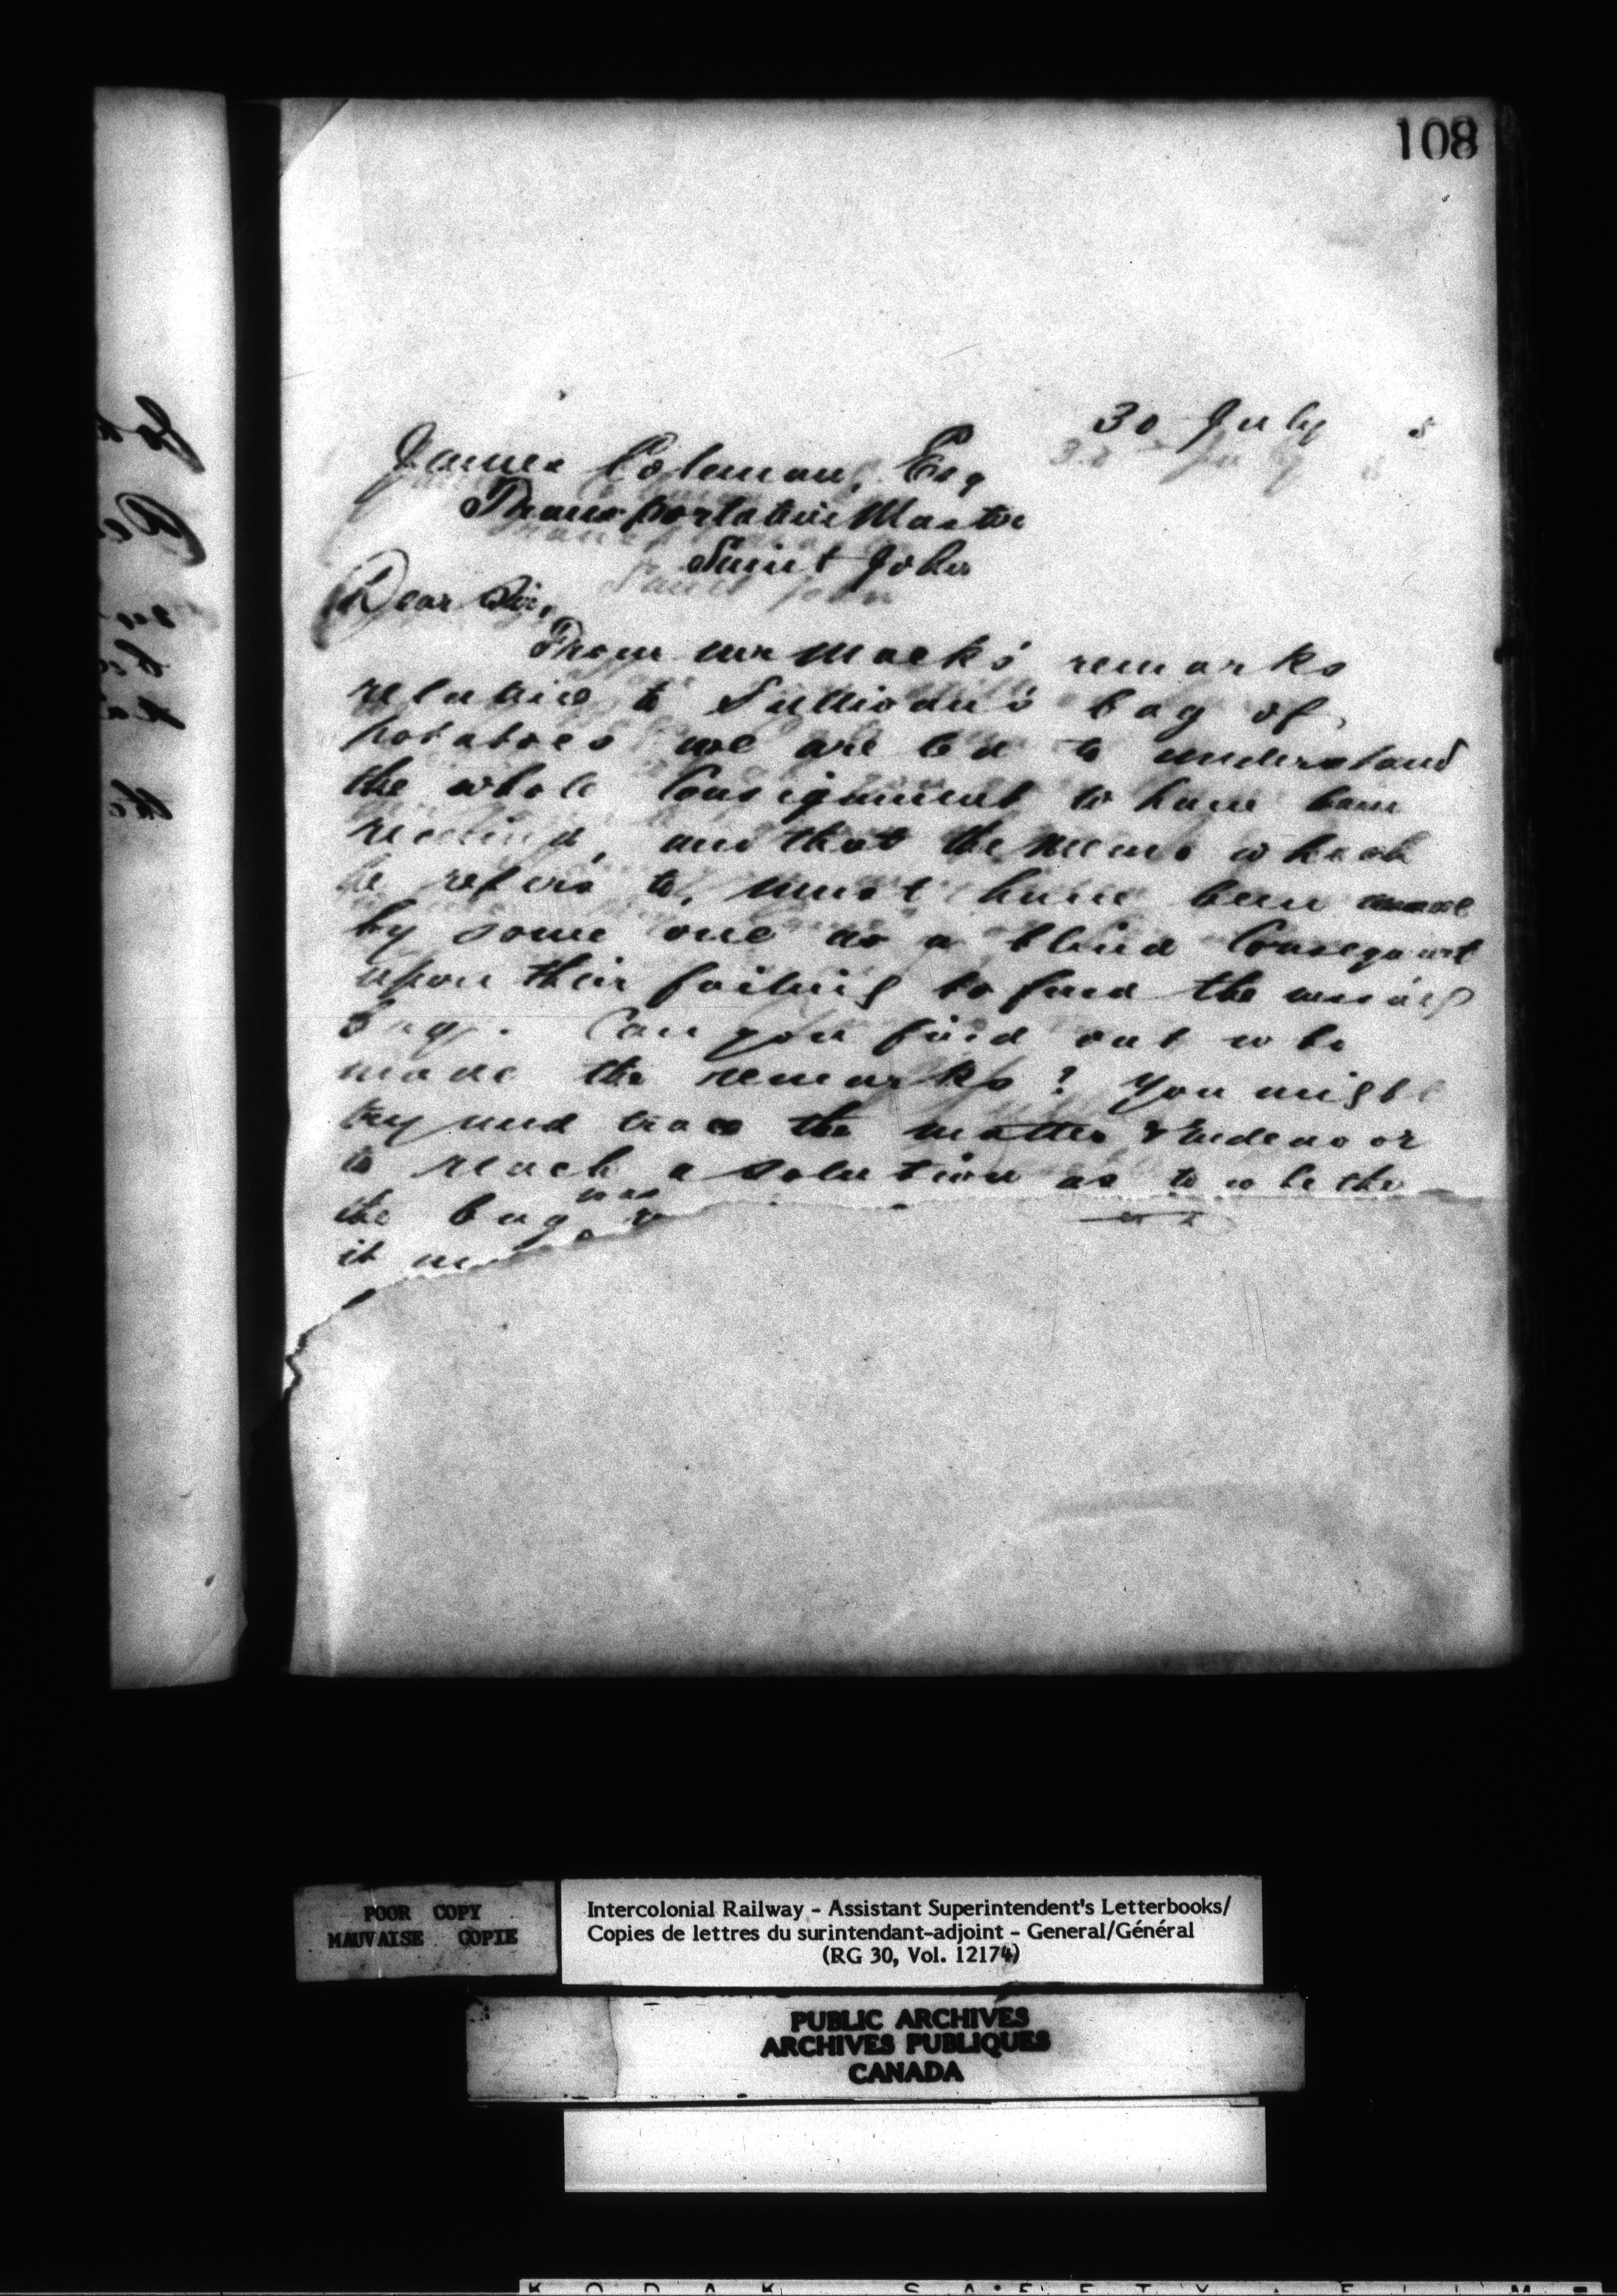 108
30 July 5
James Coleman, Esq
Transportation Master
Saint John
Dear Sir,
From Mr Mack's remarks
relative to Sullivan's bag of
potatoes we are led to understand
the whole Consignment to have been
received, and that the memo which
he refers to, must have been made
by some one as a blind Consequent
upon their failing to find the missing
bag. Can you find out who
made the remarks? You might
try and trace the matter & endeavor
to reach a solution as to whether
the bag was
it
POOR COPY
MAUVAISE COPIE
Intercolonial Railway - Assistant Superintendent's Letterbooks/
Copies de lettres du surintendant-adjoint - General/Général
(RG 30, Vol. 12174)
PUBLIC ARCHIVES
ARCHIVES PUBLIQUES
CANADA
KODAK SAFETY FILM